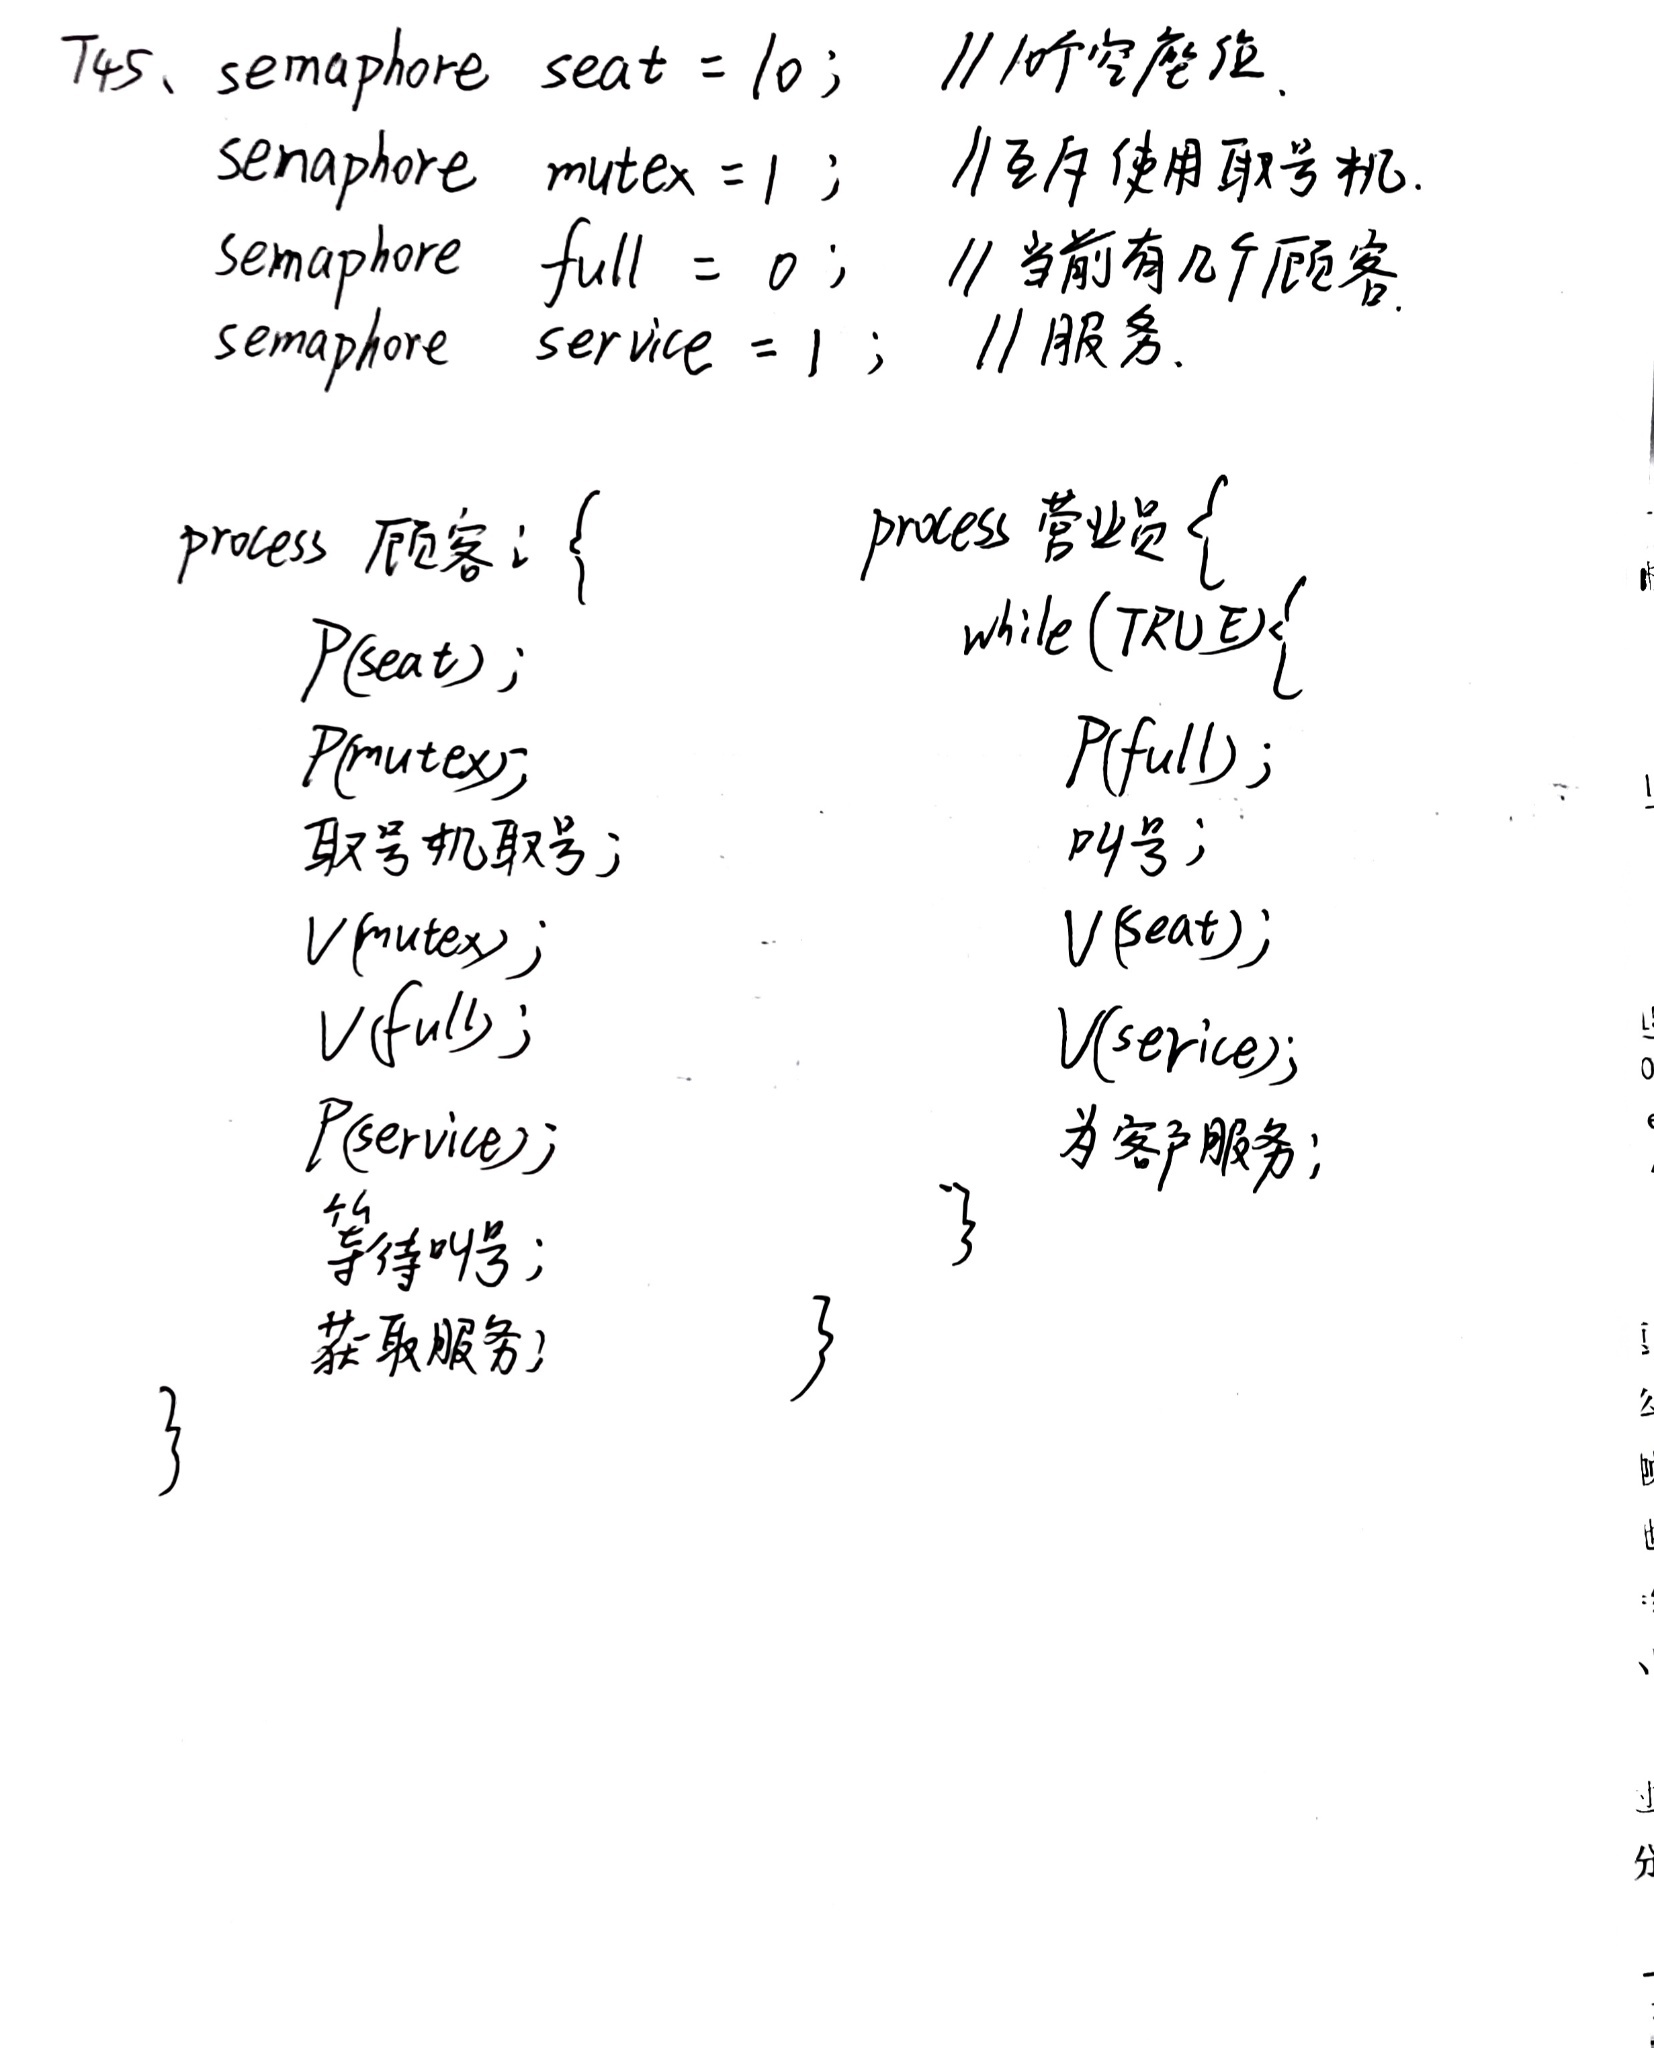 T45、semaphore seat = 10; //10个空座位.
senaphore mutex = 1; //互斥使用取号机.
semaphore full = 0; //当前有几个顾客.
semaphore service = 1; //服务.
process 顾客i {
P(seat);
P(mutex);
取号机取号;
V(mutex);
V(full);
P(service);
等待叫号;
获取服务;
}
process 营业员 {
while (TRUE) {
P(full);
叫号;
V(seat);
V(serice);
为客户服务;
}
}